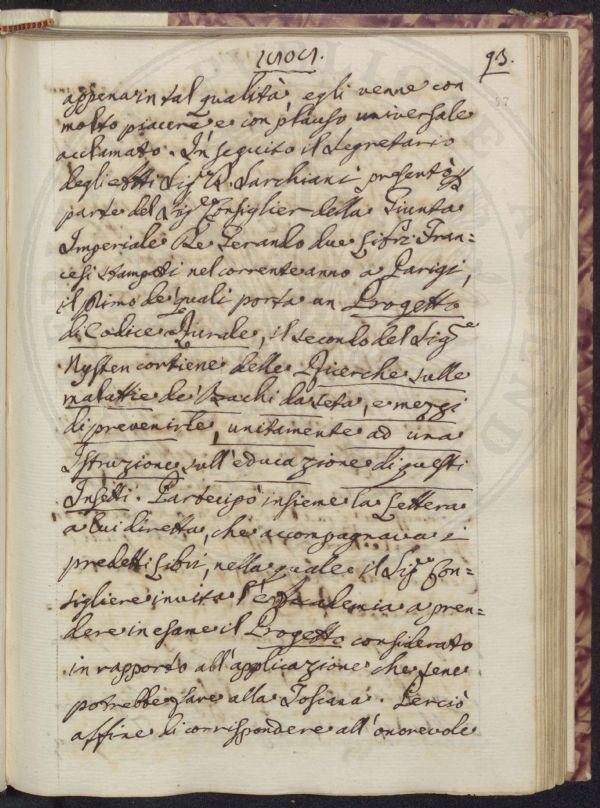 93.
appena in tal qualità egli venne con
molto piacere e con plauso universale
acclamato. In seguito il Segretario
degli Atti Sig. D. Sarchiani presentò
parte del Sig.r Consiglier della Giunta
Imperiale De Gerando due Libri Fran-
cesi stampati nel corrente anno a Parigi,
il Primo de' quali porta un Progetto
di Codice Rurale, il secondo del Sig.re
Nysten contiene delle Ricerche sulle
malattie de' Bachi da Seta, e mezzi
di prevenirle, unitamente ad una
Istruzione sull'educazione di questi
Insetti. Partecipò insieme la Lettera
a lui diretta, che accompagnava i
predetti Libri, nella quale il Sig.r Con-
sigliere invita l'Accademia a pren-
dere in esame il Progetto considerato
in rapporto all'applicazione che sene
potrebbe fare alla Toscana. Perciò
affine di corrispondere all'onorevole